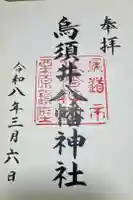 奉拝
烏須井八幡神社
令和八年三月六日